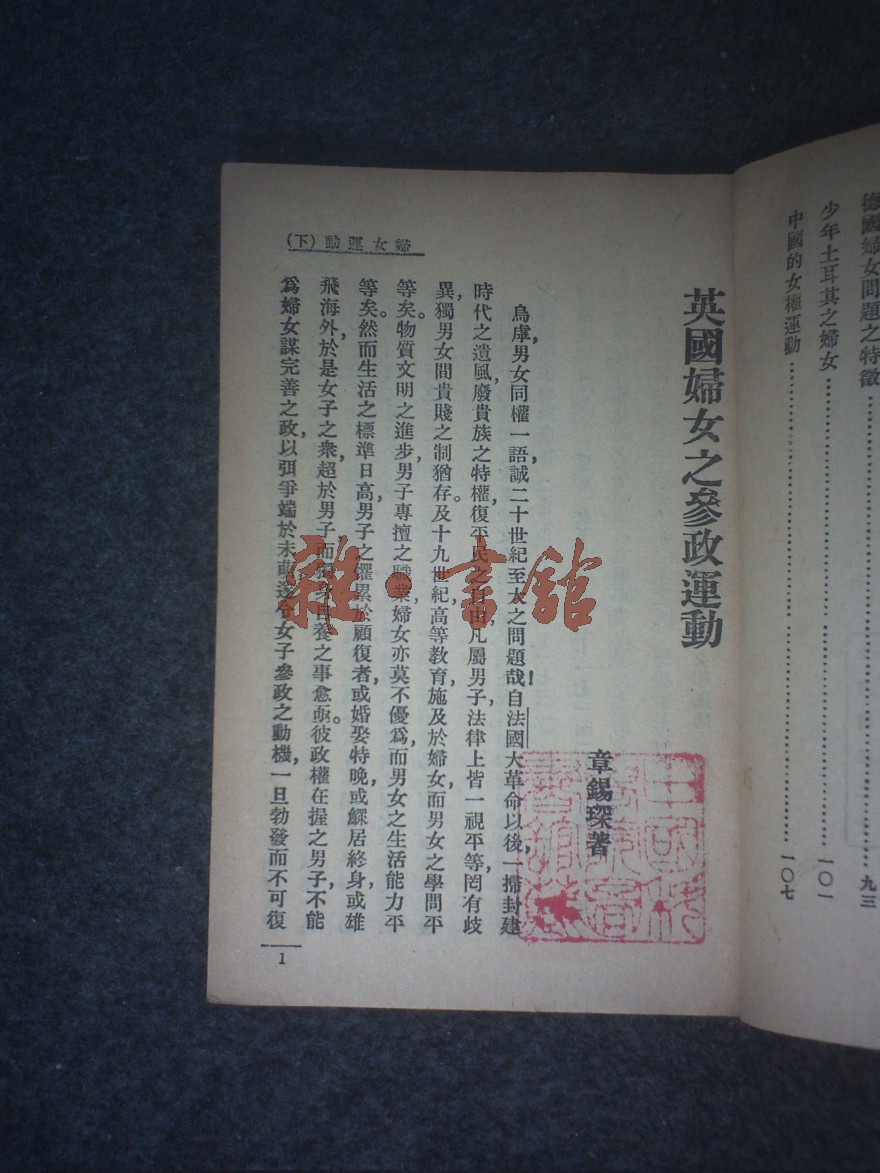 德國婦女問題之特徵……九三
少年土耳其之婦女……一〇一
中國的女權運動……一〇七
英國婦女之參政運動
章錫琛著
烏虖，男女同權一語，誠二十世紀至大之問題哉！自法國大革命以後，一掃封建
時代之遺風，廢貴族之特權，復平民之自由，凡屬男子，法律上皆一視平等，罔有歧
異，獨男女間貴賤之制猶存。及十九世紀，高等教育，施及於婦女，而男女之學問平
等矣。物質文明之進步，男子專擅之職業，婦女亦莫不優爲，而男女之生活能力平
等矣。然而生活之標準日高，男子之懼累於顧復者，或婚娶特晚，或鰥居終身，或雄
飛海外，於是女子之衆，超於男子，而獨身自養之事愈亟。彼政權在握之男子，不能
爲婦女謀完善之政，以弭爭端於未萌，遂令女子參政之動機，一旦勃發而不可復
婦女運動(下)
1
雜·書館